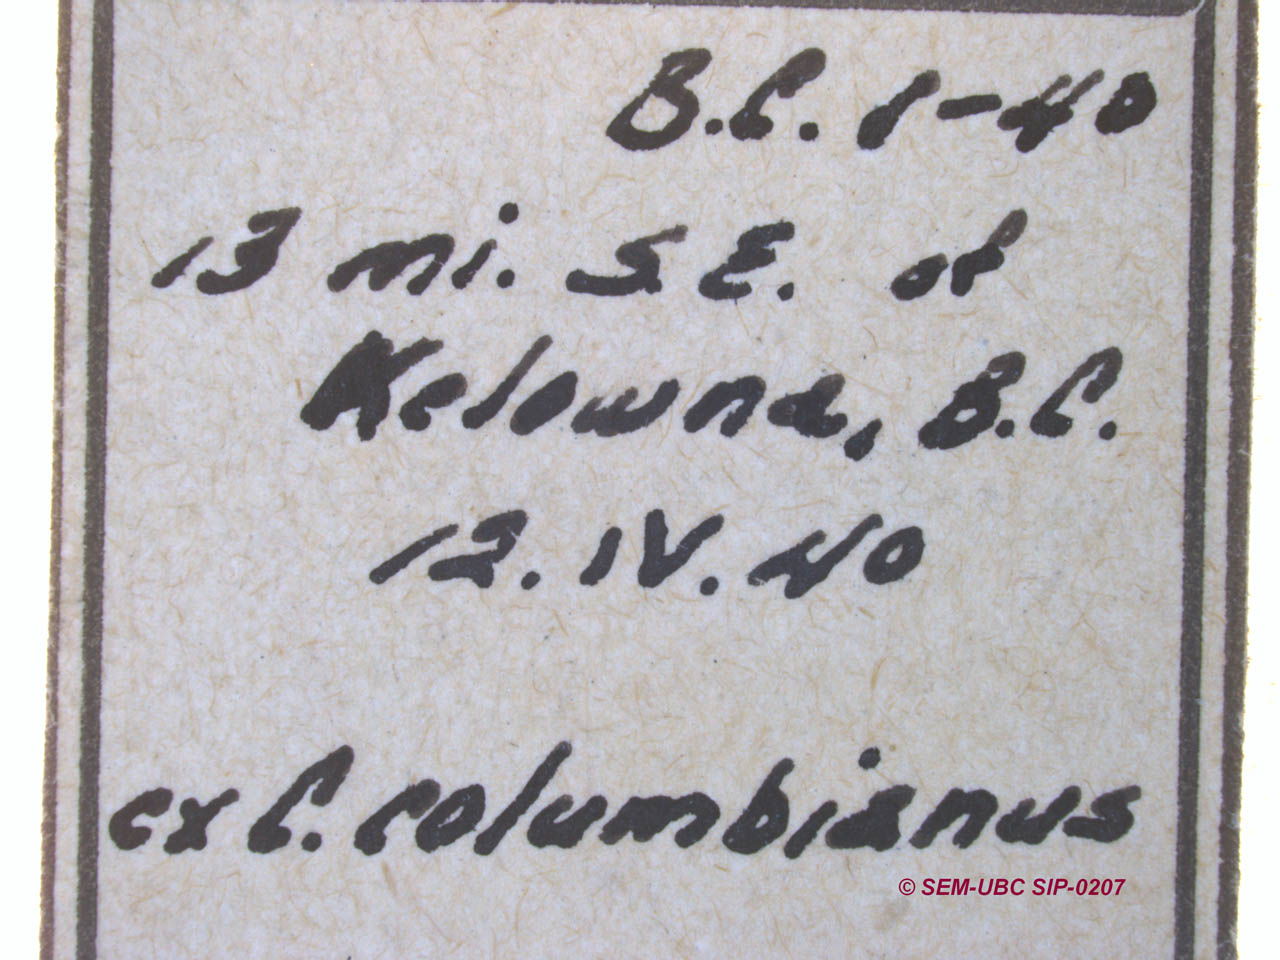 B.C. 1-40
13 mi. S.E. of
Kelowna, B.C.
12.IV.40
ex C. columbianus
© SEM-UBC SIP-0207